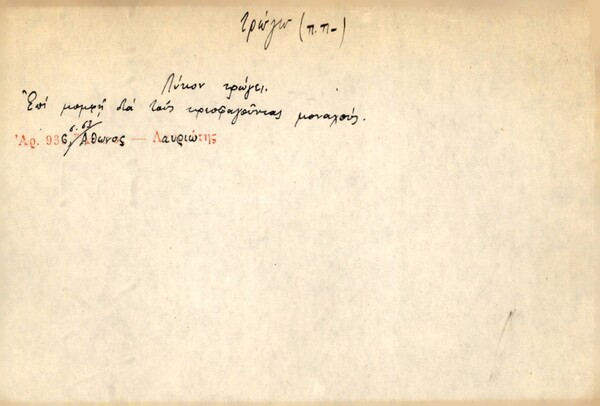 τρώγω (π.π-)
Λύκον τρώγει.
Ἐπί μομφῇ διά τούς κρεοφαγοῦντας μοναχούς.
Ἀρ. 936, σ. 67 Ἄθωνος — Λαυριώτης